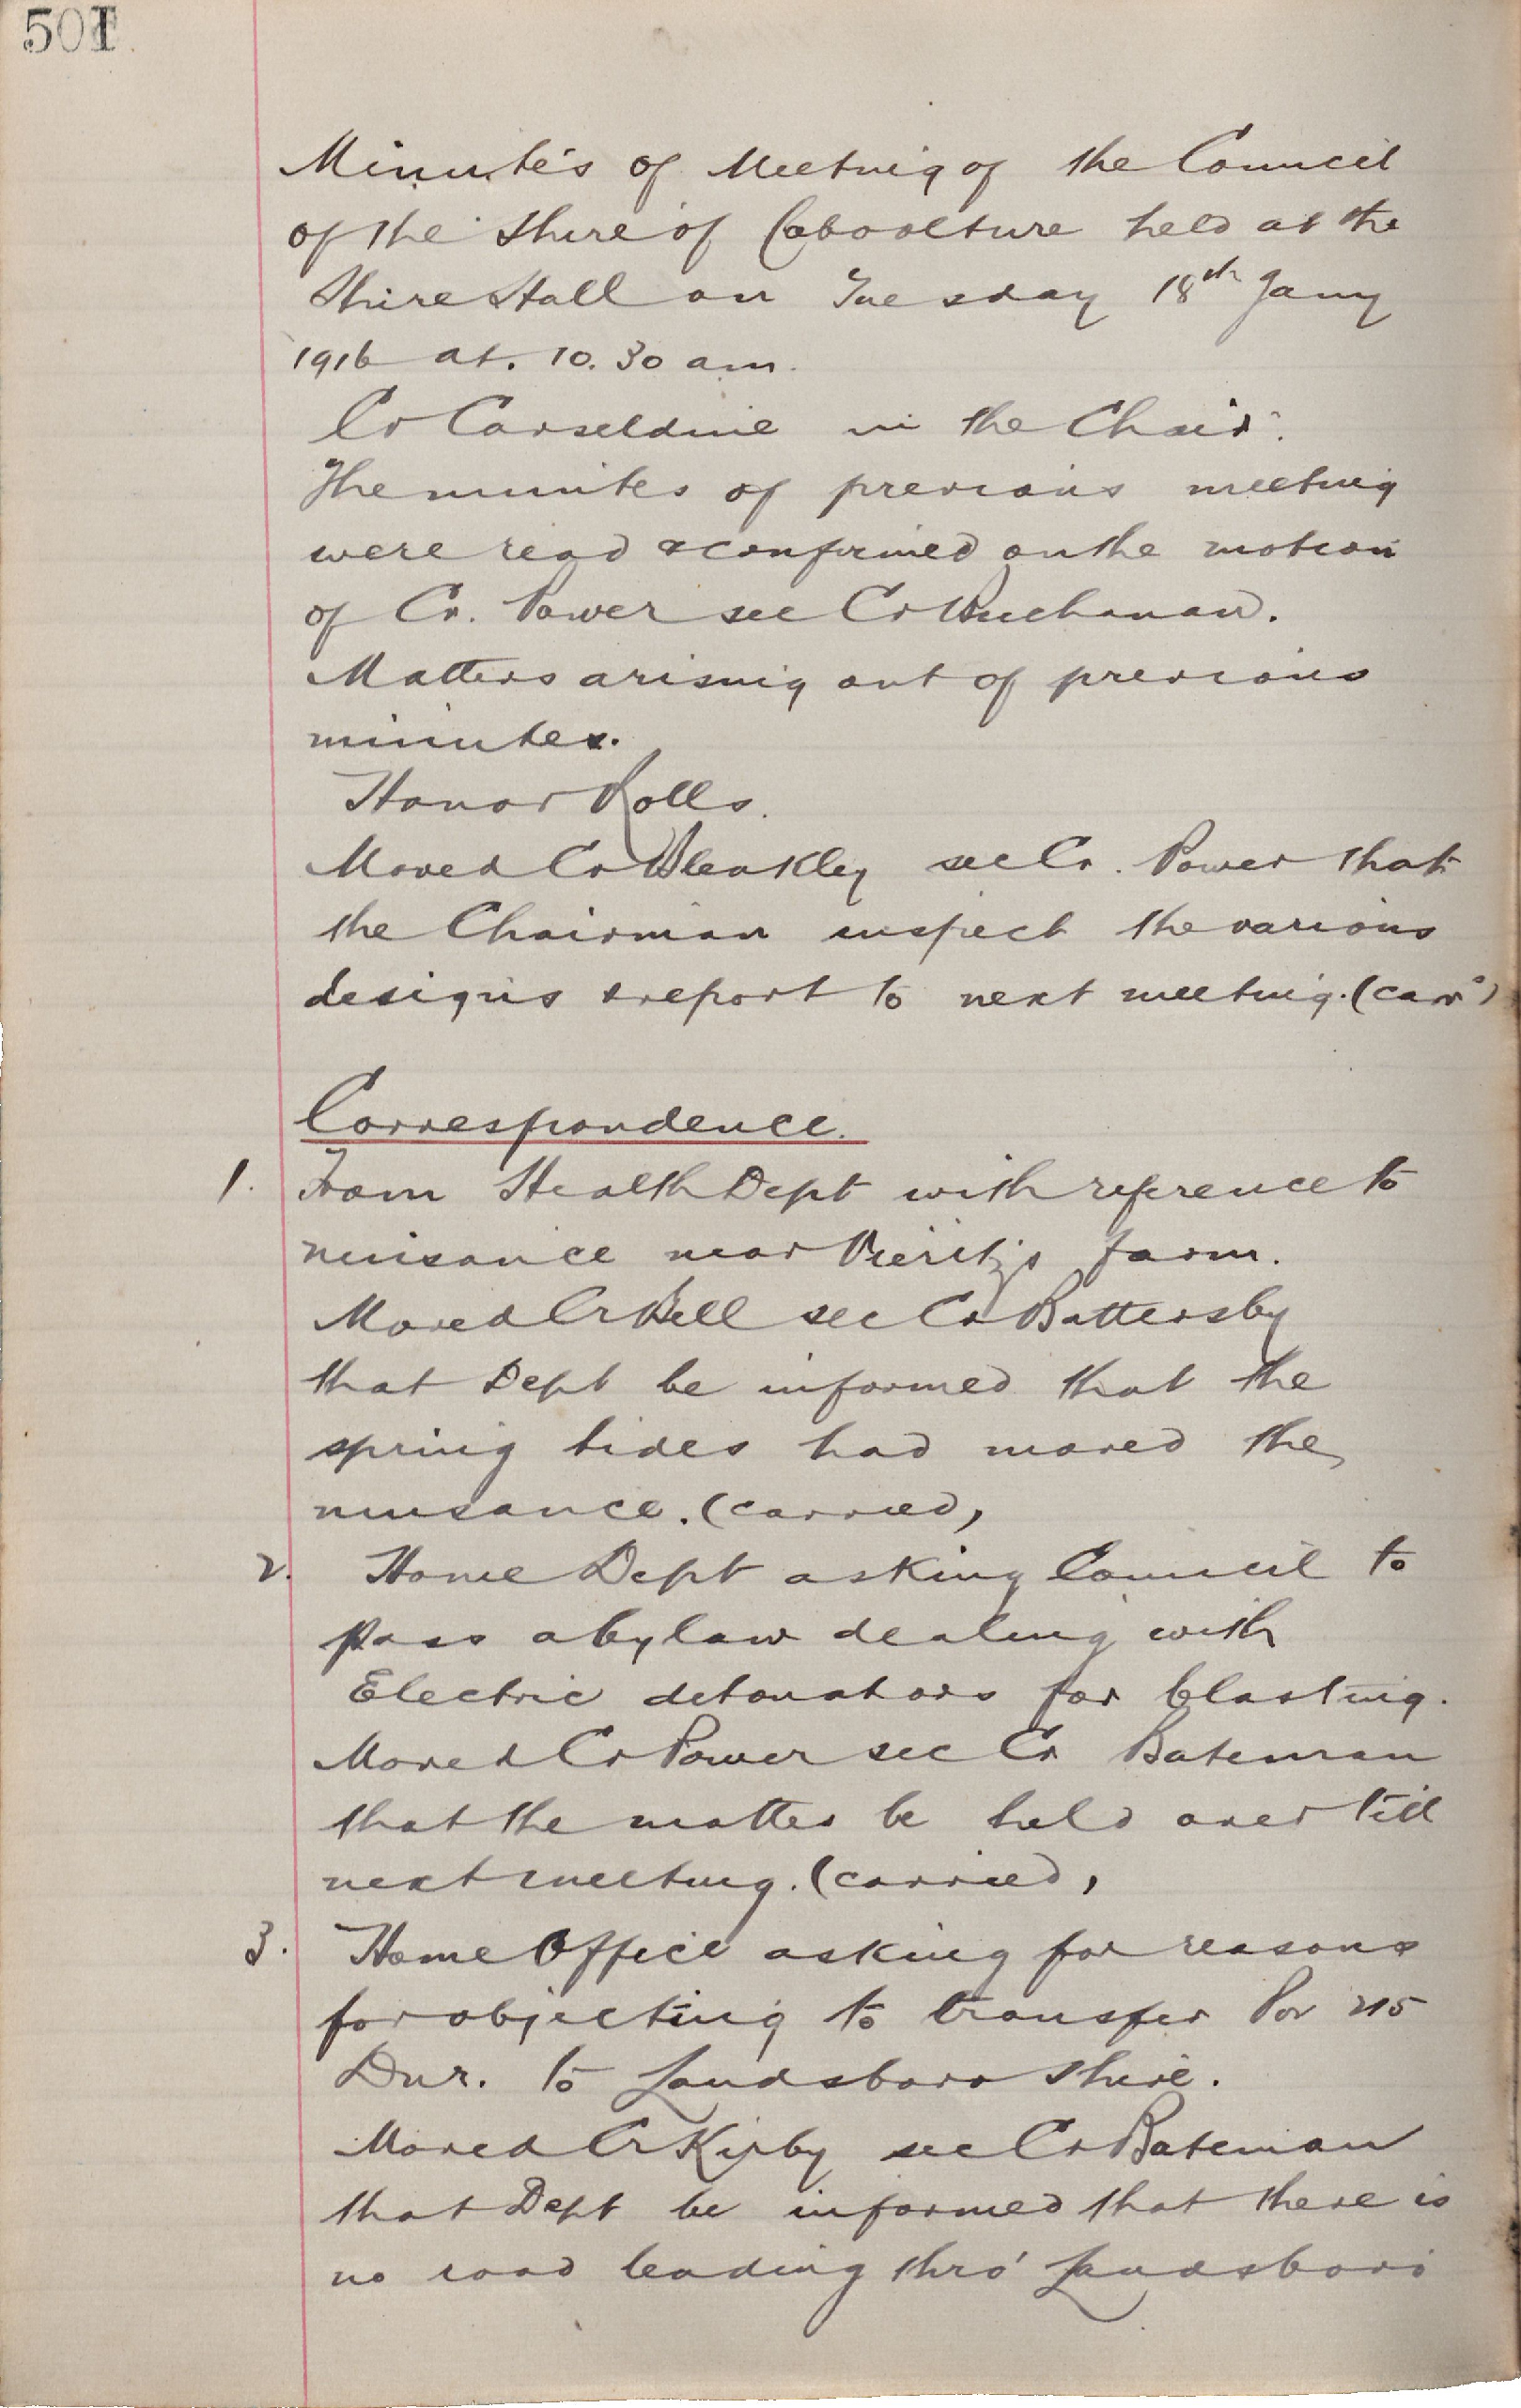 501
Minutes of Meeting of the Council
of the Shire of Caboolture held at the
Shire Hall on Tuesday 18th Jany
1916 at. 10.30 am.
Cr Carseldine in the Chair.
The minutes of previous meeting
were read & confirmed on the motion
of Cr. Power sec Cr Buchanan.
Matters arising out of previous
minutes.
Honor Rolls.
Moved Cr Bleakley sec Cr. Power that
the Chairman inspect the various
designs & report to next meeting. (carrd)
Correspondence.
1. From Health Dept with reference to
nuisance near farm.
Moved Cr Bell sec Cr Battersby
that Dept be informed that the
spring tides had moved the
nuisance. (carried,
2. Home Dept asking Council to
pass a bylaw dealing with
Electric detonators for blasting.
Moved Cr Power sec Cr Bateman
that the matter be held over till
next meeting. (carried,
3. Home Office asking for reasons
for objecting to transfer Por 215
Dur. to Landsboro Shire.
Moved Cr Kirby sec Cr Bateman
that Dept be informed that there is
no road leading thro' Landsboro